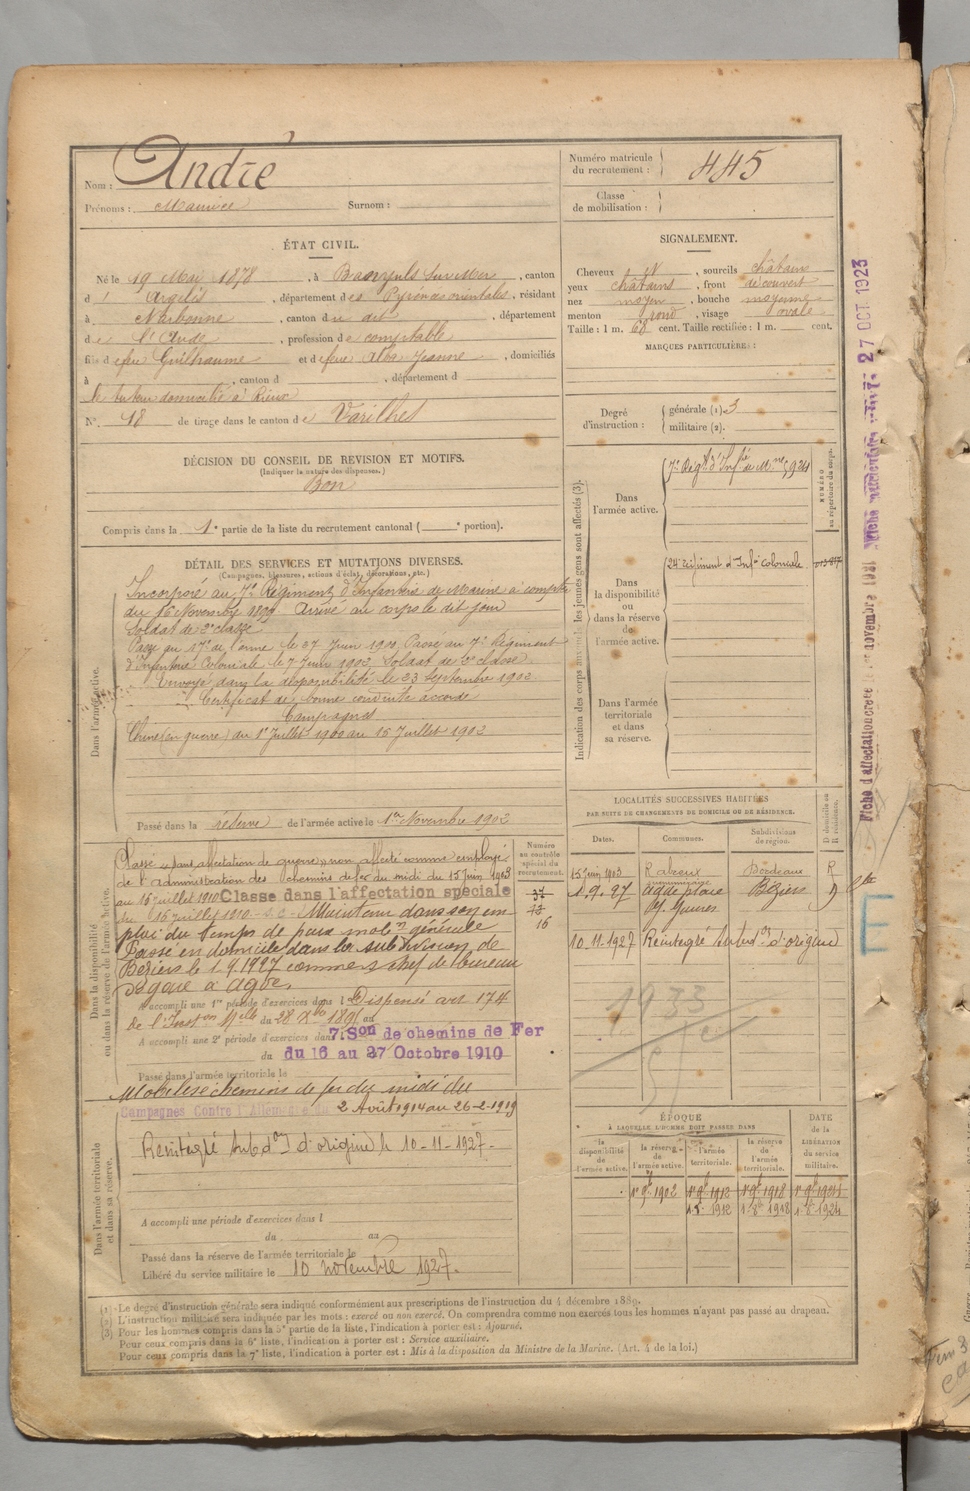 Nom : André
Prénoms : Maurice Surnom :
Numéro matricule du recrutement : 445
Classe de mobilisation :
ÉTAT CIVIL.
Né le 19 Mai 1878, à Banyuls sur Mer, canton
d'Argelès, département des Pyrénées orientales, résidant
à Narbonne, canton du dit, département
de l'Aude, profession de comptable
fils de feu Guilhaume et de feue Jeanne, domiciliés
à , canton d , département d
le tuteur domicilié à Rieux
N° 48 de tirage dans le canton de Varilhes
SIGNALEMENT.
Cheveux , sourcils châtains
yeux châtains, front découvert
nez moyen, bouche moyenne
menton rond, visage ovale
Taille : 1 m. 68 cent. Taille rectifiée : 1 m. cent.
MARQUES PARTICULIÈRES :
Degré d'instruction : générale (1). 3
militaire (2).
DÉCISION DU CONSEIL DE REVISION ET MOTIFS.
(Indiquer la nature des dispenses.)
Bon
Compris dans la 1e partie de la liste du recrutement cantonal ( e portion).
DÉTAIL DES SERVICES ET MUTATIONS DIVERSES.
(Campagnes, blessures, actions d'éclat, décorations, etc.)
Dans l'armée active.
Incorporé au 7e Régiment d'Infanterie de Marine à compter
du 16 Novembre 1899. Arrivé au corps le dit jour
Soldat de 2e classe
Passé au 17e de l'arme le 27 Juin 1900. Passé au 7e Régiment
d'Infanterie Coloniale le 7 Juin 1902. Soldat de 2e classe.
Envoyé dans la disponibilité le 23 Septembre 1902
Certificat de bonne conduite accordé
Campagnes
Chine (en guerre) du 1er Juillet 1900 au 15 Juillet 1902
Passé dans la réserve de l'armée active le 1er Novembre 1902
Indication des corps auxquels les jeunes gens sont affectés (3).
NUMÉRO au répertoire du corps.
Dans l'armée active.
7e Régt d'Infie de Mne 5924
Dans la disponibilité ou dans la réserve de l'armée active.
24e régiment d'Infie Coloniale.
Dans l'armée territoriale et dans sa réserve.
LOCALITÉS SUCCESSIVES HABITÉES
PAR SUITE DE CHANGEMENTS DE DOMICILE OU DE RÉSIDENCE.
Dates. Communes. Subdivisions de région. D domicile ou R résidence.
15 Juin 1903 Bordeaux R
1.9.27 Agde place Béziers D
10.11.1927 Réintégré subdon d'origine
1933
E
Dans la disponibilité ou dans la réserve de l'armée active.
Numéro au contrôle spécial du recrutement.
37
16
Classé "sans affectation de guerre", non affecté comme employé
de l'administration des chemins de fer du midi du 15 Juin 1903
au 16 juillet 1910 Classé dans l'affectation spéciale
du 16 juillet 1910 Maintenu dans son em-
ploi du temps de paix mobon générale
Passé en domicile dans la subdivision de
Béziers le 1.9.1927 comme s/chef de bureau
de gare à Agde.
A accompli une 1re période d'exercices dans l Dispensé art 174
de l'Inston Mlle du 28 Xbre 1895 au
A accompli une 2e période d'exercices dans 7e Son de chemins de Fer
du du 16 au 27 Octobre 1910
Passé dans l'armée territoriale le
Mobilisé chemins de fer du midi du
Campagnes Contre l'Allemagne du 2 Août 1914 au 26-2-1919
Dans l'armée territoriale et dans sa réserve.
Réintégré subdon d'origine le 10-11-1927-
A accompli une période d'exercices dans l
du au
Passé dans la réserve de l'armée territoriale le
Libéré du service militaire le 10 novembre 1927.
ÉPOQUE
À LAQUELLE L'HOMME DOIT PASSER DANS
DATE de la LIBÉRATION du service militaire.
la disponibilité de l'armée active. la réserve de l'armée active. l'armée territoriale. la réserve de l'armée territoriale.
1er 9bre 1902 1er 9bre 1912 1er 9bre 1918 1er 9bre 1924
(1) Le degré d'instruction générale sera indiqué conformément aux prescriptions de l'instruction du 4 décembre 1889.
(2) L'instruction militaire sera indiquée par les mots : exercé ou non exercé. On comprendra comme non exercés tous les hommes n'ayant pas passé au drapeau.
(3) Pour les hommes compris dans la 5e partie de la liste, l'indication à porter est : Ajourné.
Pour ceux compris dans la 6e liste, l'indication à porter est : Service auxiliaire.
Pour ceux compris dans la 7e liste, l'indication à porter est : Mis à la disposition du Ministre de la Marine. (Art. 4 de la loi.)
27 OCT. 1923